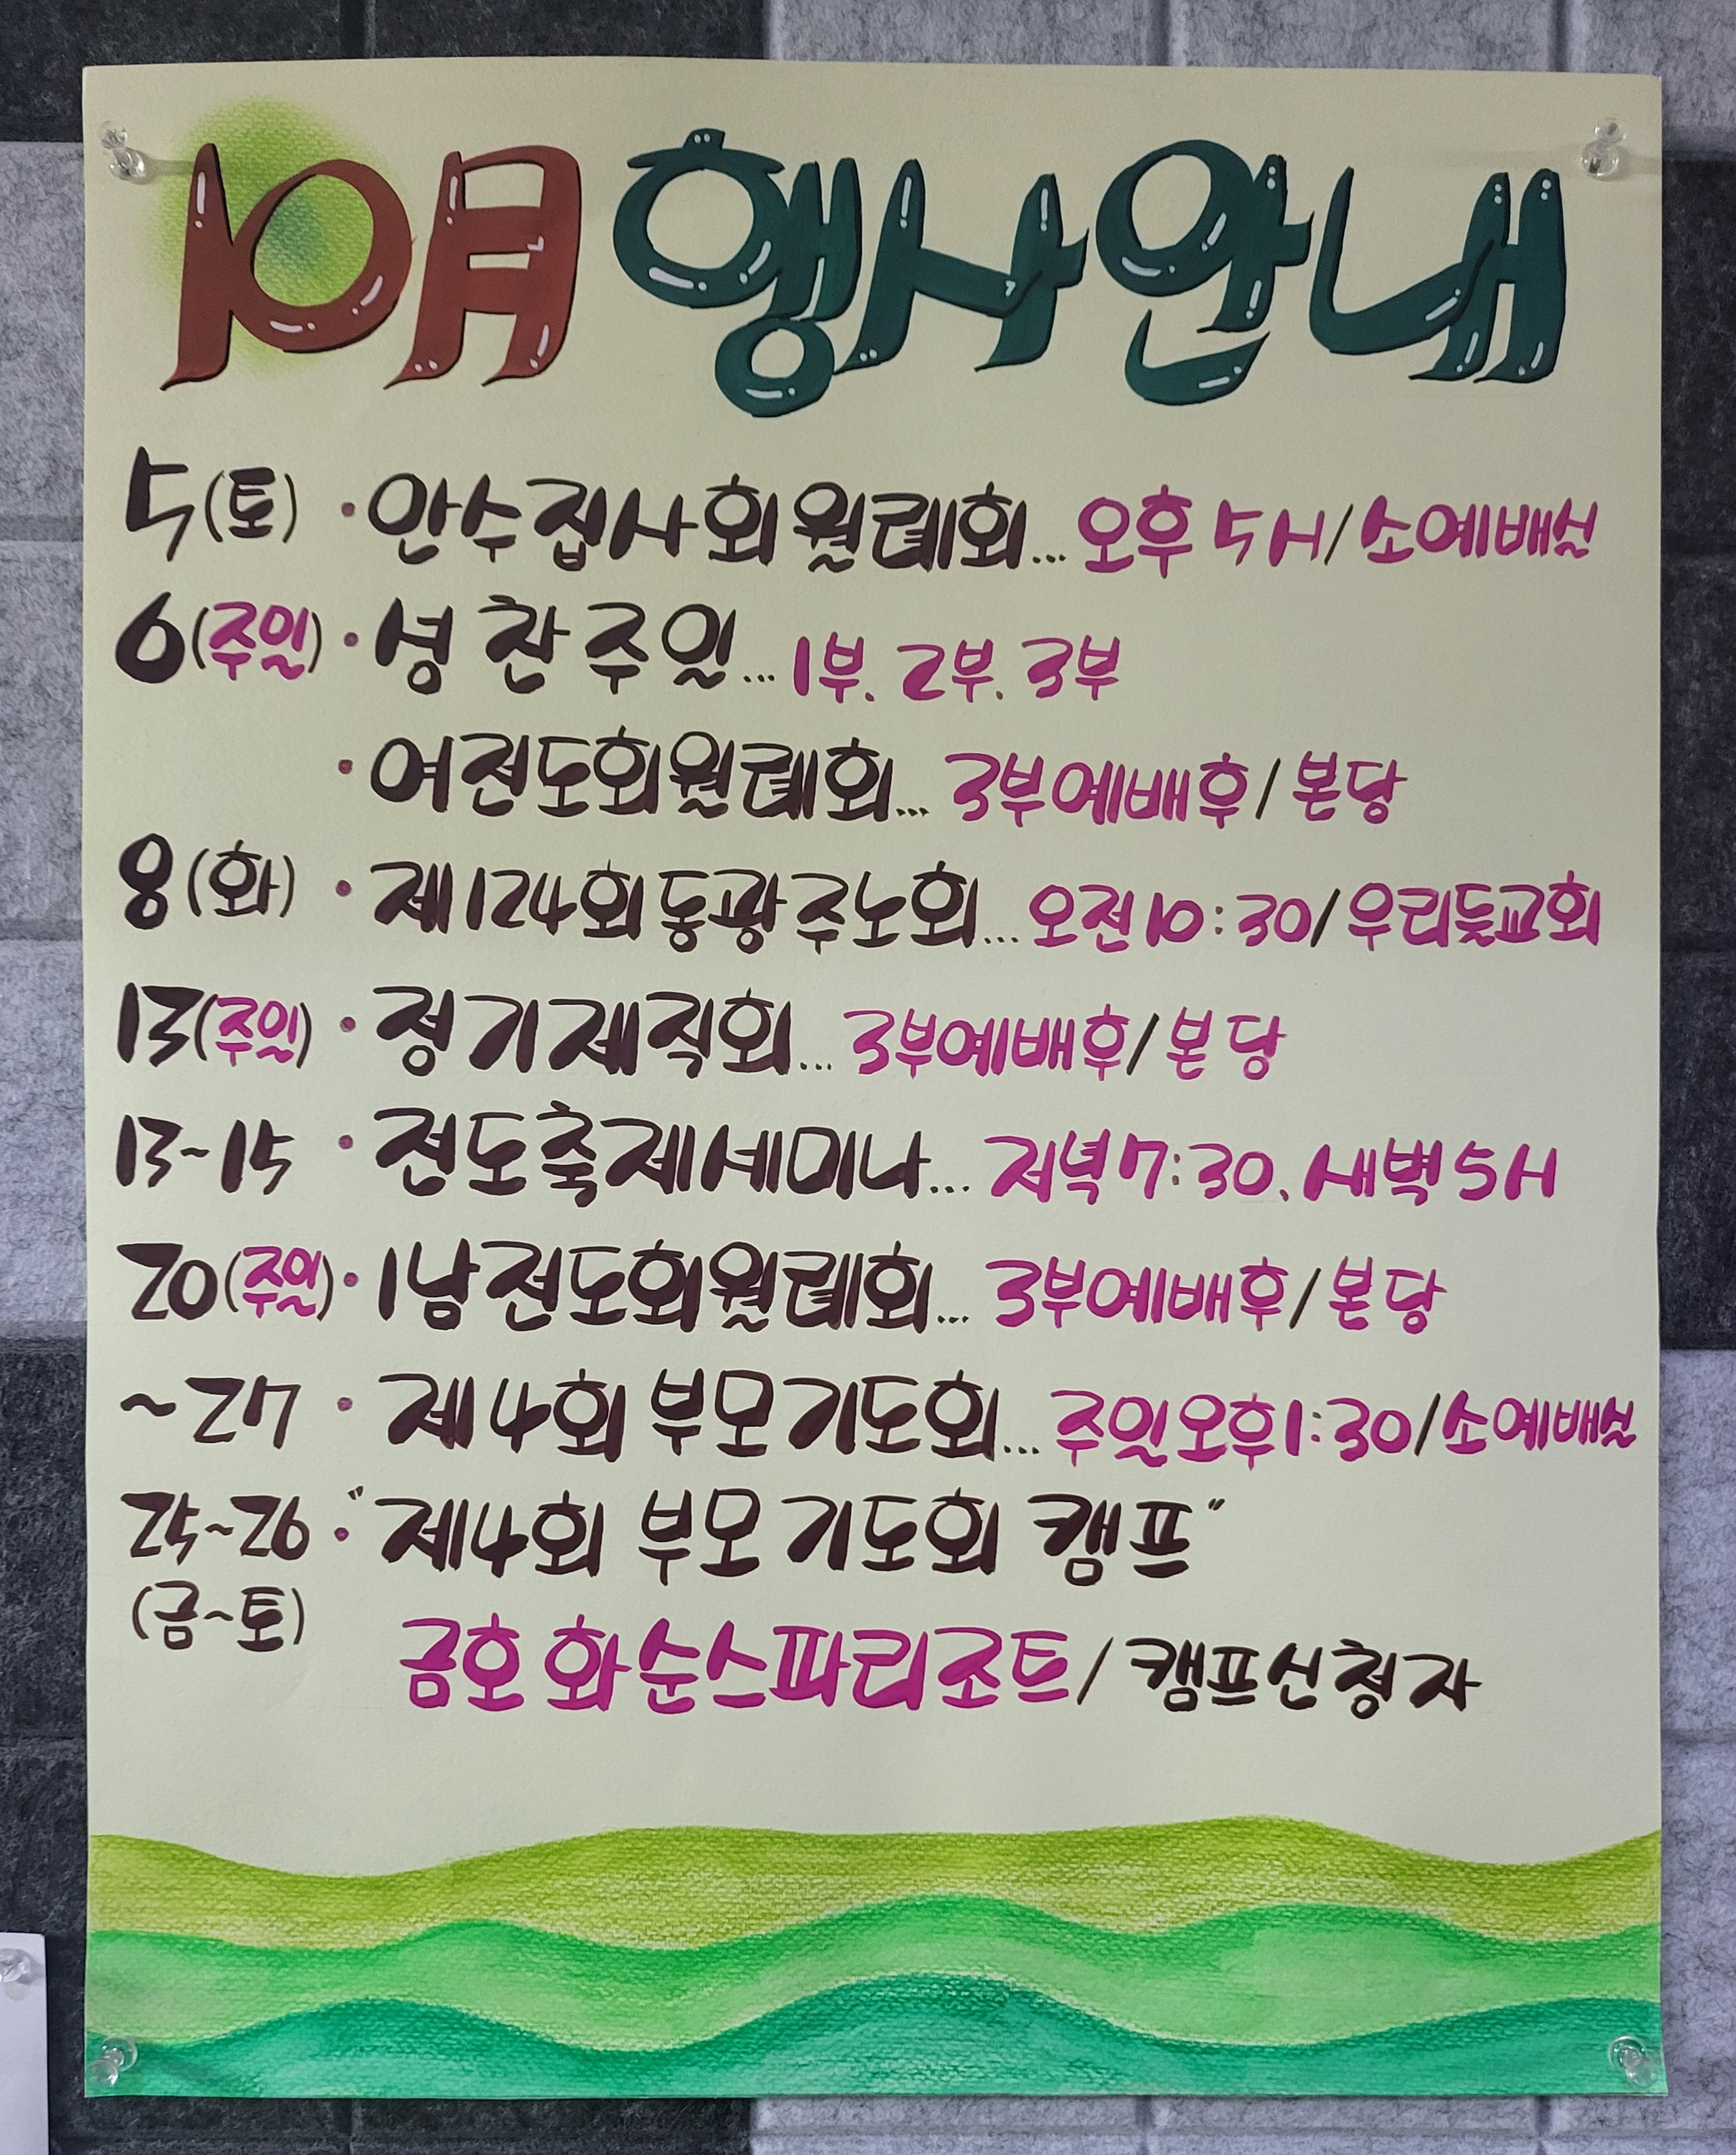 10月 행사안내
5(토) · 안수집사회월례회... 오후 5시/소예배실
6(주일) · 성찬주일... 1부. 2부. 3부
· 여전도회월례회... 3부예배후/본당
8(화) · 제124회동광주노회... 오전10:30/우리들교회
13(주일) · 정기제직회... 3부예배후/본당
13~15 · 전도축제세미나... 저녁7:30. 새벽5시
20(주일) · 1남전도회월례회... 3부예배후/본당
~27 · 제4회 부모기도회... 주일오후1:30/소예배실
25~26 · "제4회 부모기도회 캠프"
(금~토)
금호화순스파리조트/캠프신청자